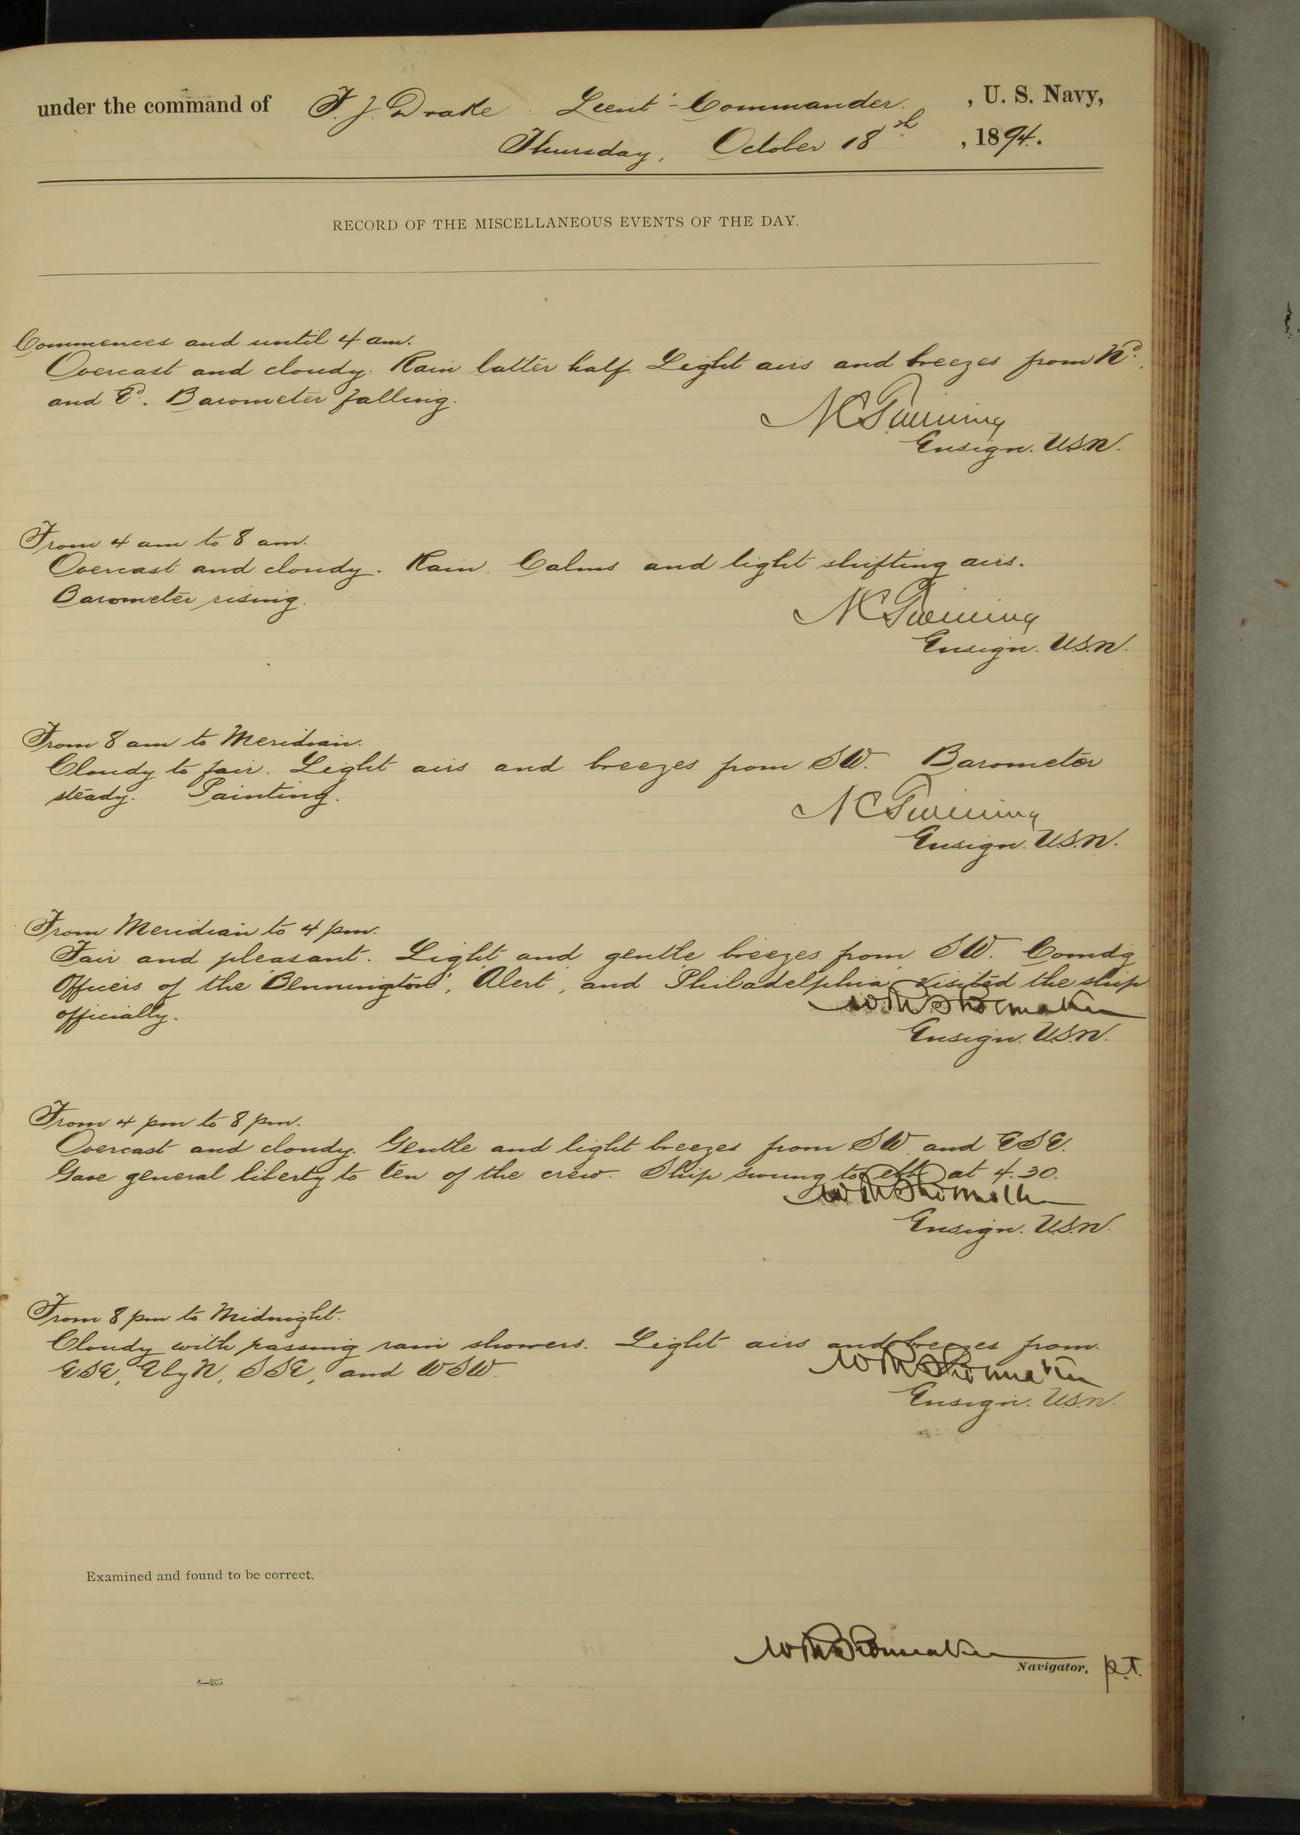 under the command of F. J. Drake Lieut-Commander, U. S. Navy,
Thursday, October 18th, 1894.
RECORD OF THE MISCELLANEOUS EVENTS OF THE DAY.
Commences and until 4 am.
Overcast and cloudy. Rain latter half. Light airs and breezes from Nd.
and Ed. Barometer falling.
N C Twining
Ensign. U.S.N.
From 4 am to 8 am.
Overcast and cloudy. Rain. Calms and light shifting airs.
Barometer rising.
N C Twining
Ensign. U.S.N.
From 8 am to Meridian.
Cloudy to fair. Light airs and breezes from SW. Barometer
steady. Painting.
N C Twining
Ensign. U.S.N.
From Meridian to 4 pm.
Fair and pleasant. Light and gentle breezes from SW. Comdg
Officers of the "Bennington", "Alert", and "Philadelphia" visited the ship
officially.
W R Shoemaker
Ensign. U.S.N.
From 4 pm to 8 pm.
Overcast and cloudy. Gentle and light breezes from SW and ESE.
Gave general liberty to ten of the crew. Ship swung to ebb at 4.30.
W R Shoemaker
Ensign. U.S.N.
From 8 pm to Midnight.
Cloudy with passing rain showers. Light airs and breezes from
ESE, E by N, SSE, and WSW.
W R Shoemaker
Ensign. U.S.N.
Examined and found to be correct.
W R Shoemaker
Navigator. p.t.